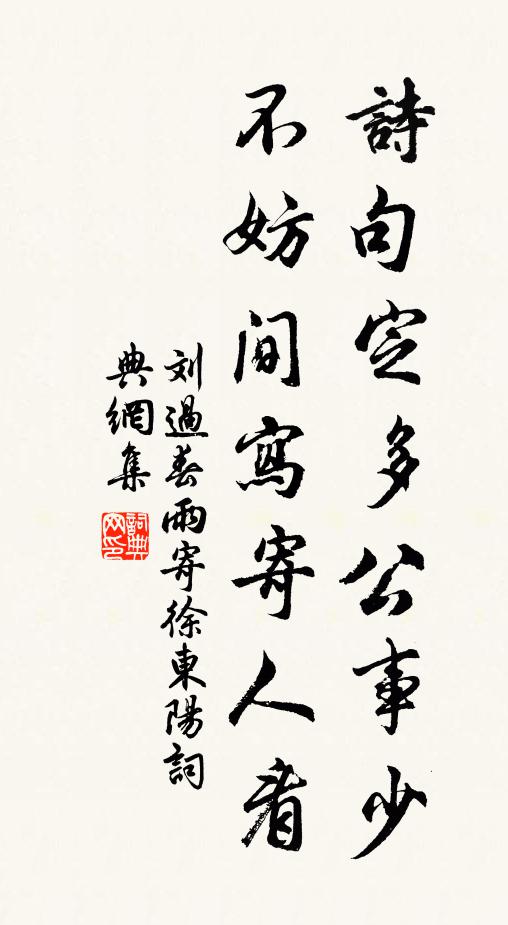 詩句定多公事少
不妨間寫寄人看
刘過春雨寄徐東陽詞
典網集
詞典
网印